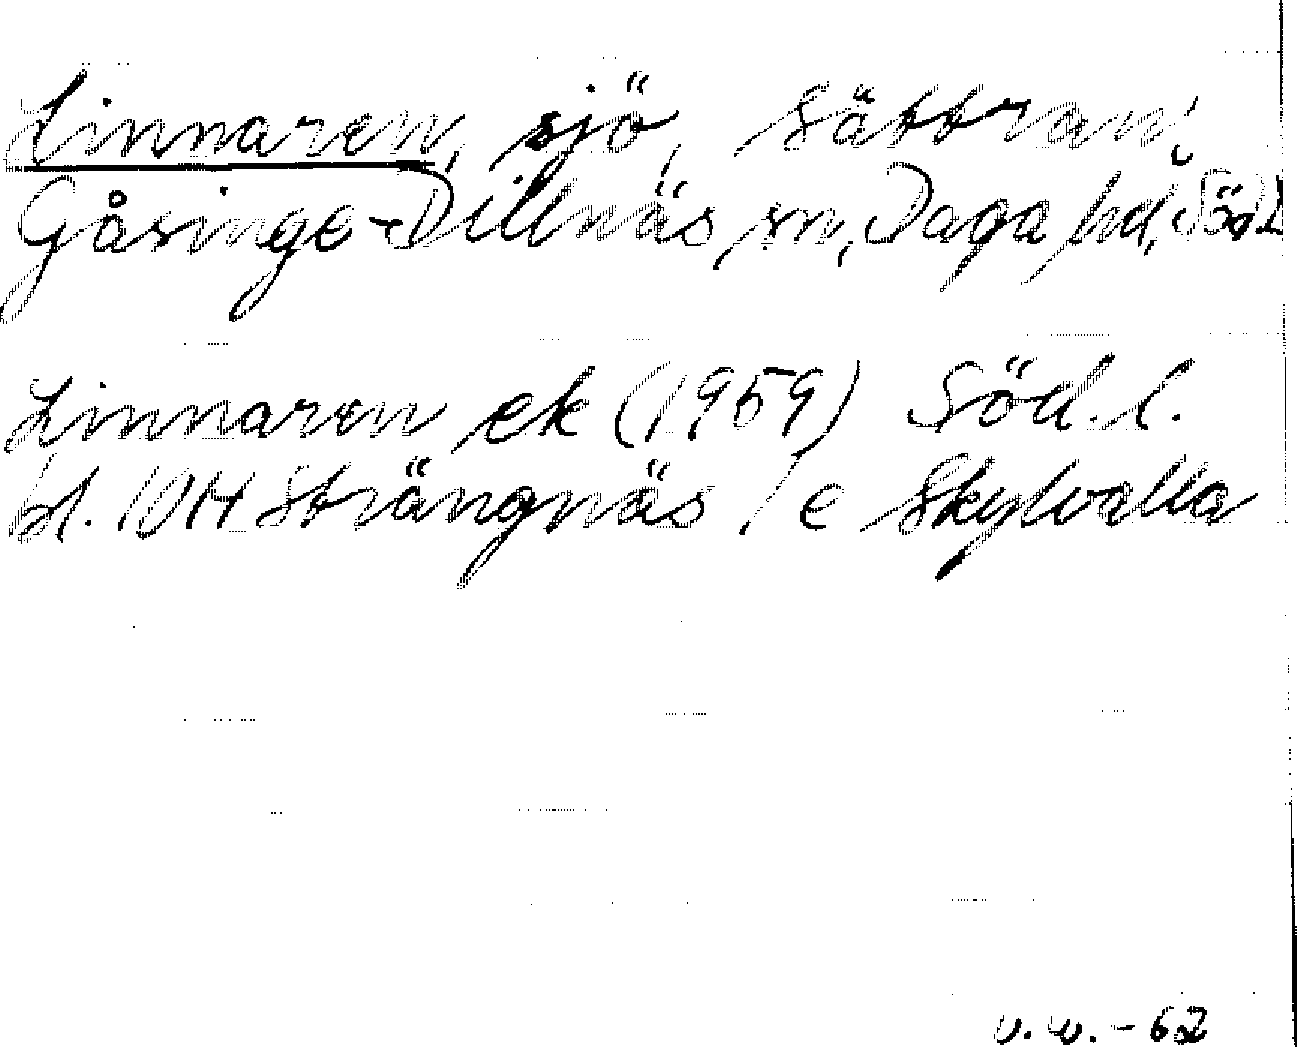 Linnaren, sjö, Sättran,
Gåsinge-Dillnäs sn, Daga hd, Södl
Linnaren ek (1959) Söd. l.
bl. 10H Strängnäs / e Skylvalla
v. v. - 62